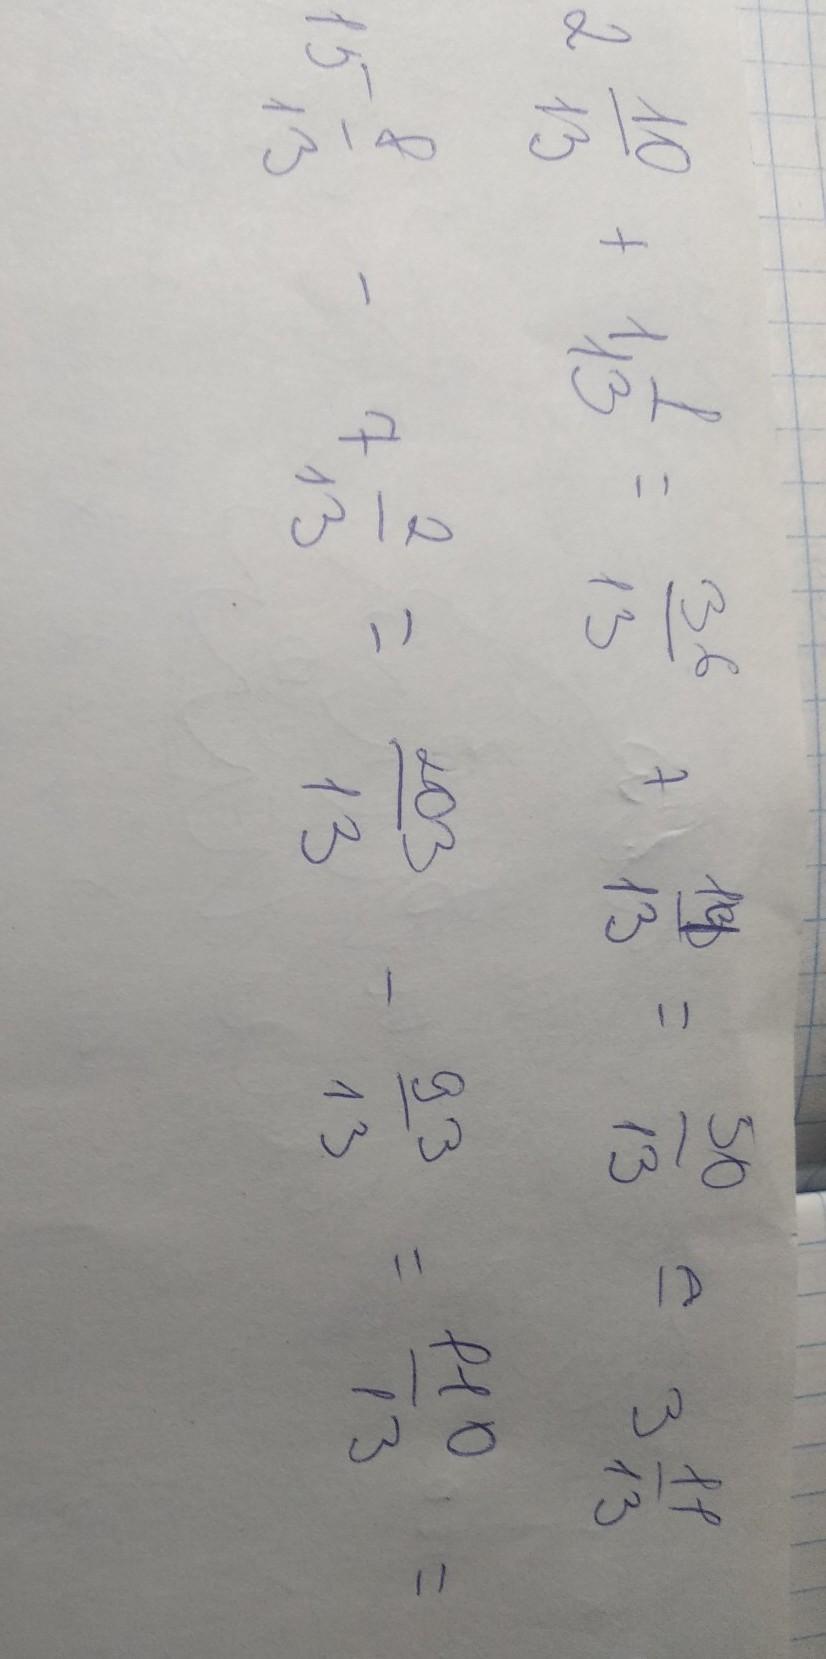 2 10/13 + 1 1/13 = 36/13 + 14/13 = 50/13 = 3 11/13
15 8/13 - 7 2/13 = 203/13 - 93/13 = 110/13 =